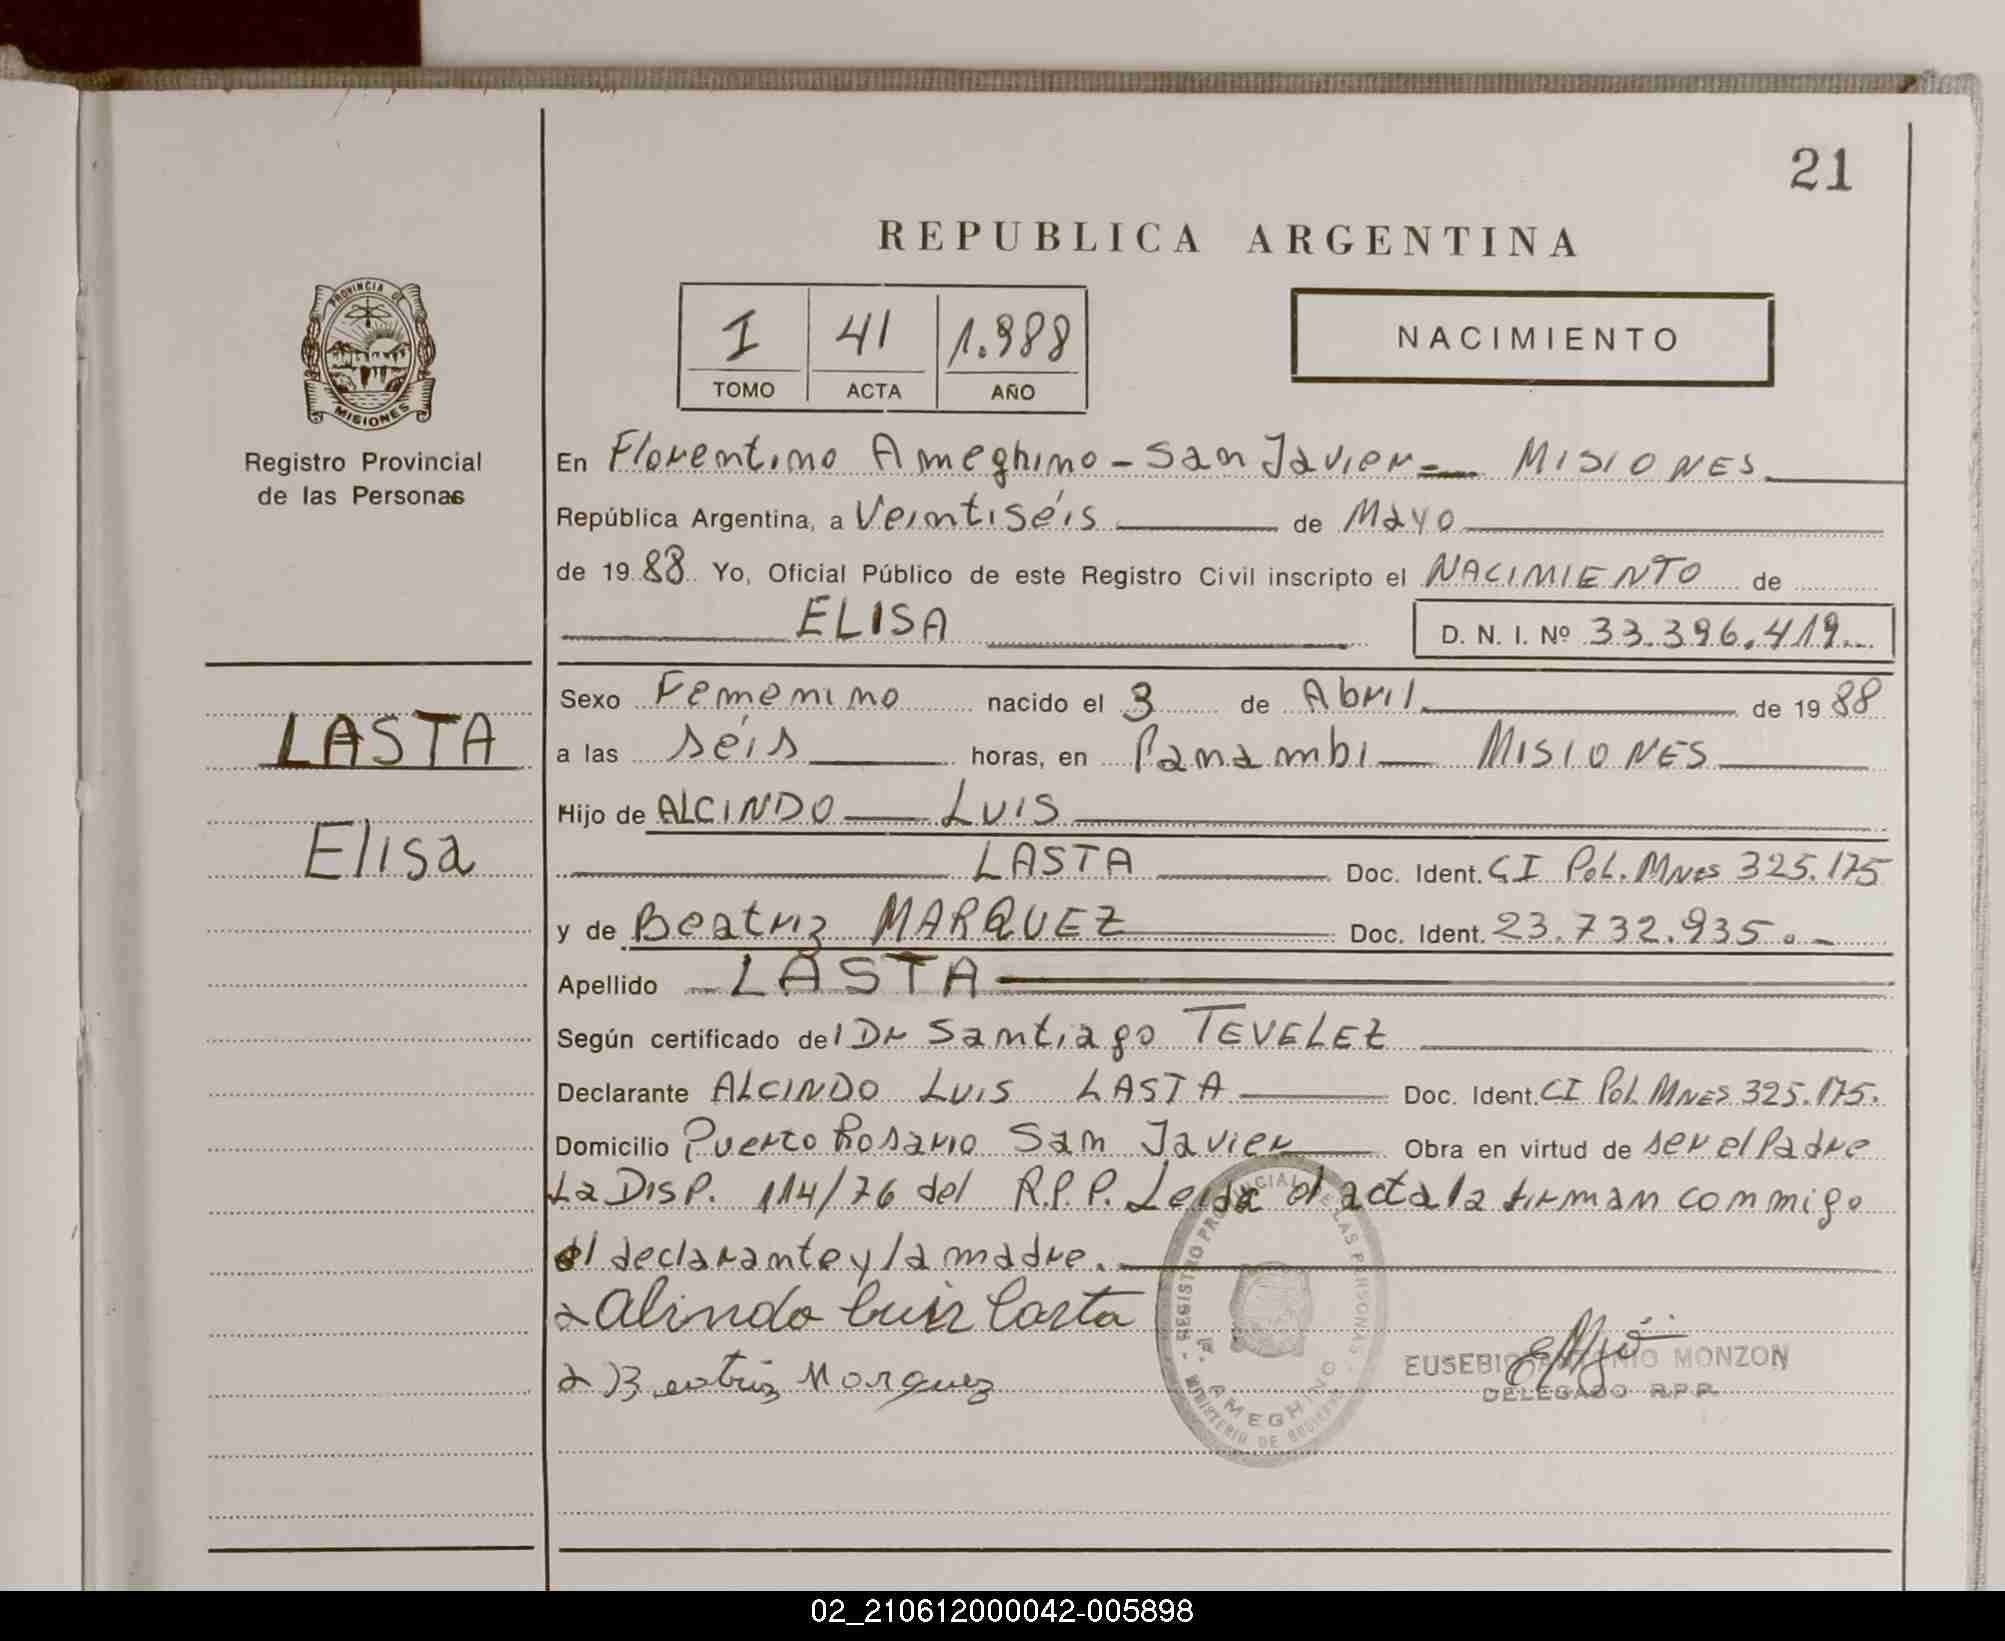 21
REPUBLICA ARGENTINA
PROVINCIA DE
MISIONES
Registro Provincial
de las Personas
I 41 1.988
TOMO ACTA AÑO
NACIMIENTO
En Florentino Ameghino - San Javier - MISIONES
República Argentina, a Veintiséis de Mayo
de 1988 Yo, Oficial Público de este Registro Civil inscripto el NACIMIENTO de
ELISA D. N. I. Nº 33.396.419
Sexo Femenino nacido el 3 de Abril de 1988
LASTA
a las séis horas, en Panambi MISIONES
Hijo de ALCINDO LUIS
Elisa
LASTA Doc. Ident. CI Pol. Mnes 325.175
y de Beatriz MARQUEZ Doc. Ident. 23.732.935.-
Apellido LASTA
Según certificado del Dr Santiago TEVELEZ
Declarante ALCINDO LUIS LASTA Doc. Ident. CI Pol. MNES 325.175.
Domicilio Puerto Rosario San Javier Obra en virtud de ser el Padre
La DISP. 114/76 del R.P.P. Leida el acta la firman conmigo
el declarante y la madre.
Alindo Luis Lasta
Beatriz Marquez
REGISTRO PROVINCIAL DE LAS PERSONAS
AMEGHINO
MINISTERIO DE GOBIERNO
EUSEBIO ANTONIO MONZON
DELEGADO R.P.P.
02_210612000042-005898